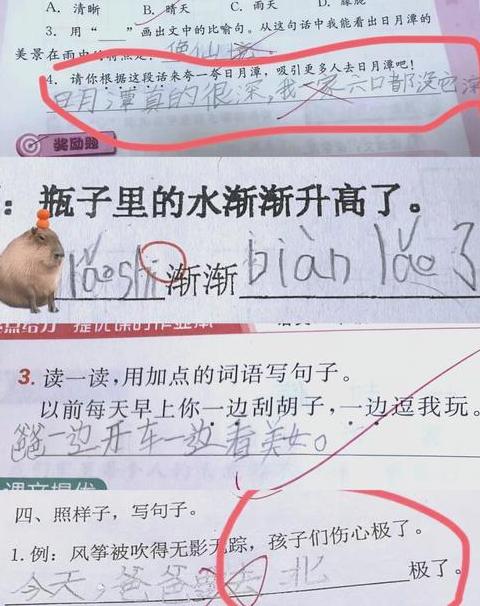 A. 清晰 B. 晴天 C. 雨天 D. 朦胧
3. 用“____”画出文中的比喻句。从这句话中我能看出日月潭的
美景在雨中 像仙境
4. 请你根据这段话来夸一夸日月潭，吸引更多人去日月潭吧！
日月潭真的很深，我一家六口都没它深
奖励题
：瓶子里的水渐渐升高了。
lǎoshī渐渐biàn lǎo了
3. 读一读，用加点的词语写句子。
以前每天早上你一边刮胡子，一边逗我玩。
爸爸一边开车一边看美女。
四、照样子，写句子。
1. 例：风筝被吹得无影无踪，孩子们伤心极了。
今天，爸爸去北极了。